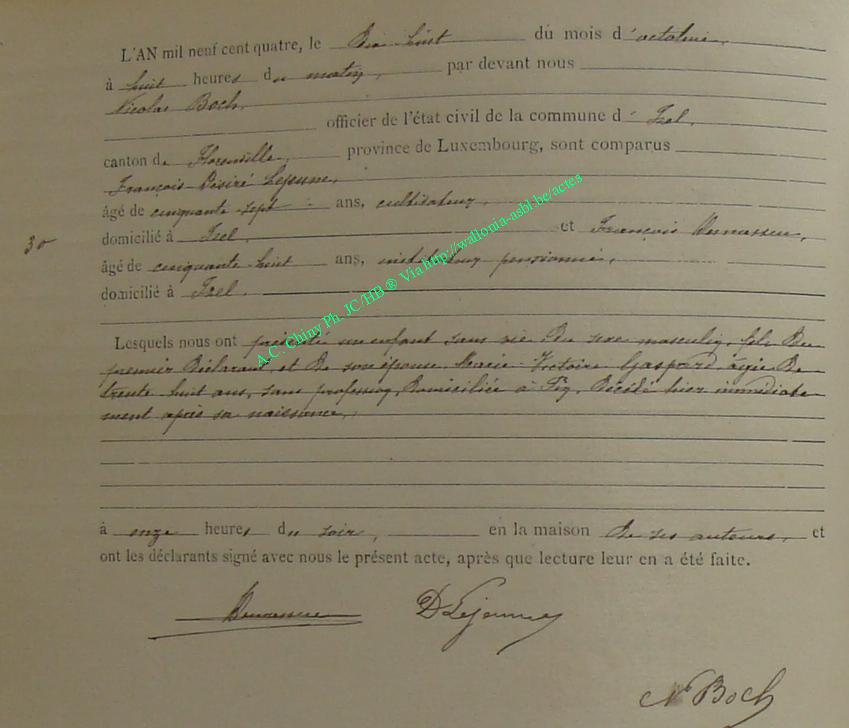 L'AN mil neuf cent quatre, le Dix huit du mois d'octobre,
à huit heures du matin, par devant nous
Nicolas Boch,
officier de l'état civil de la commune d'Izel,
canton de Florenville, province de Luxembourg, sont comparus
François-Désiré Lejeune,
âgé de cinquante-sept ans, cultivateur,
domicilié à Izel, et François
30
âgé de cinquante-huit ans, instituteur pensionné,
domicilié à Izel.
Lesquels nous ont présenté un enfant sans vie du sexe masculin, fils du
premier Déclarant, et de son épouse Marie-Victoire Gaspard, agée de
trente huit ans, sans profession, Domiciliée à Décédé hier immédiate-
ment après sa naissance,
à onze heures du soir, en la maison de ses auteurs, et
ont les déclarants signé avec nous le présent acte, après que lecture leur en a été faite.
D Lejeune
N Boch
A.C. Chiny Ph. JC/HB ® Via http://wallonia-asbl.be/actes